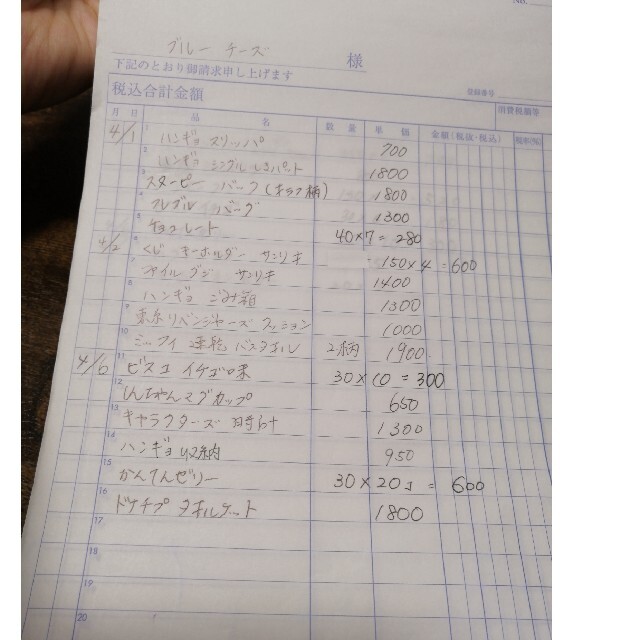 No.
ブルー チーズ 様
下記のとおり御請求申し上げます
登録番号
税込合計金額 消費税額等
月 日 品 名 数 量 単 価 金額(税抜・税込) 税率(%)
4/1 1 ハンギョ スリッパ 700
2 ハンギョ シングル 1800
3 スヌーピー バーク(キョフ柄) 1800
4 フレブル バーグ 1300
5 チョコレート 40×7=280
4/2 6 くじ キーホルダー サンリオ 150×4=600
7 サンリオ 1400
8 ハンギョ ごみ箱 1300
9 東京リベンジャーズ クッション 1000
10 ミッフィ 速乾 バスタオル 2柄 1900
4/6 11 ビスコ イチゴ味 30×10=300
12 しんちゃんマグカップ 650
13 キャラクターズ 時計 1300
14 ハンギョ 収納 950
15 かんてんゼリー 30×20コ=600
16 ドナチプ タオルケット 1800
17
18
19
20